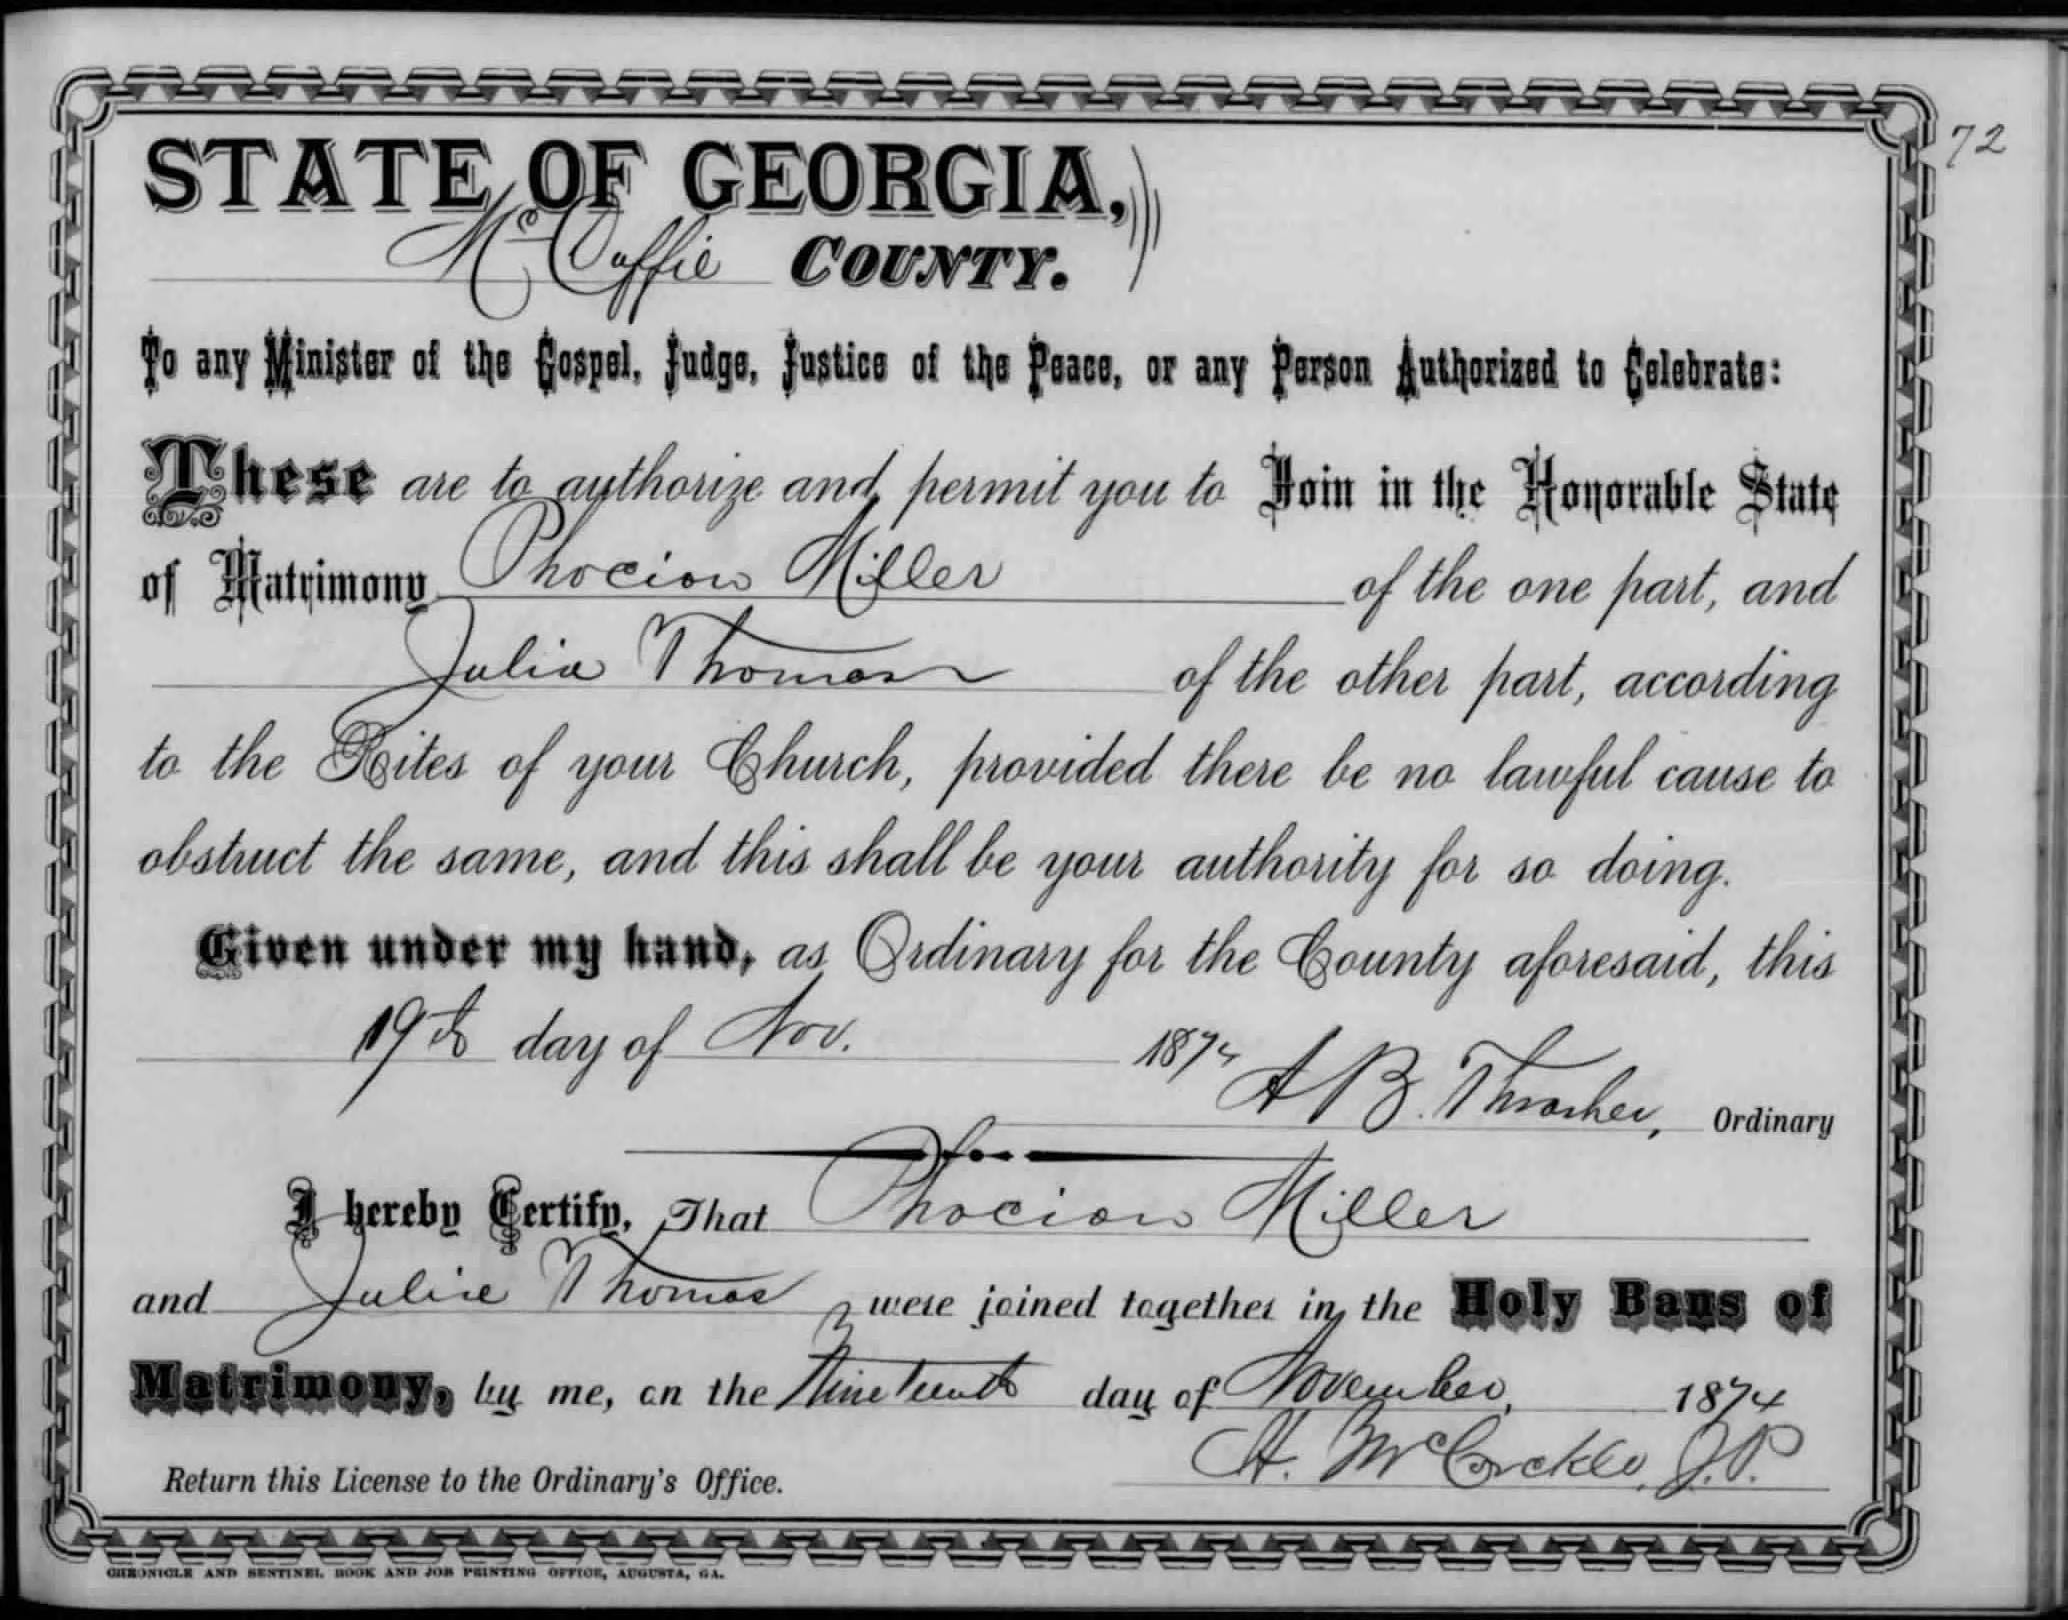 72
STATE OF GEORGIA,
McDuffie COUNTY.
To any Minister of the Gospel, Judge, Justice of the Peace, or any Person Authorized to Celebrate:
These are to authorize and permit you to Join in the Honorable State
of Matrimony Phocion Miller of the one part, and
Julia Thomas of the other part, according
to the Rites of your Church, provided there be no lawful cause to
obstruct the same, and this shall be your authority for so doing.
Given under my hand, as Ordinary for the County aforesaid, this
19th day of Nov. 1874
A B. Thrasher, Ordinary
I hereby Certify, That Phocion Miller
and Julia Thomas were joined together in the Holy Bans of
Matrimony, by me, on the Nineteenth day of November, 1874
H. McCorkle, J.P.
Return this License to the Ordinary's Office.
CHRONICLE AND SENTINEL BOOK AND JOB PRINTING OFFICE, AUGUSTA, GA.